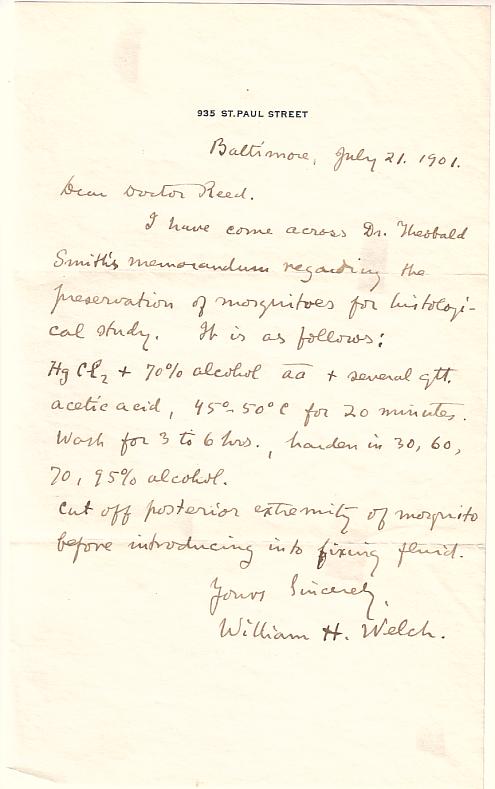 935 ST. PAUL STREET
Baltimore, July 21. 1901.
Dear Doctor Reed.
I have come across Dr. Theobald
Smith's memorandum regarding the
preservation of mosquitoes for histologi-
cal study. It is as follows:
HgCl2 + 70% alcohol āā + several gtt.
acetic acid, 45°-50°C for 20 minutes.
Wash for 3 to 6 hrs., harden in 30, 60,
70, 95% alcohol.
Cut off posterior extremity of mosquito
before introducing into fixing fluid.
Yours Sincerely,
William H. Welch.